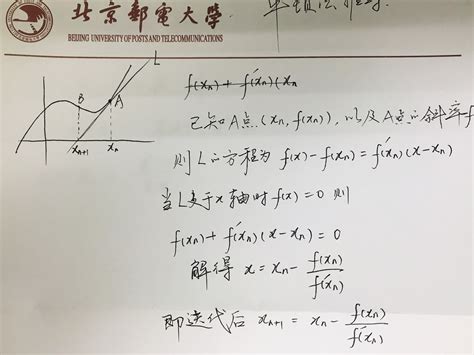 北京郵電大學
BEIJING UNIVERSITY OF POSTS AND TELECOMMUNICATIONS
L
B
A
xₙ₊₁ xₙ
f(xₙ) + f'(xₙ)(xₙ
已知A点 (xₙ, f(xₙ)), 以及A点的斜率f
则L的方程为 f(x) - f(xₙ) = f'(xₙ)(x-xₙ)
当L交于x轴时 f(x) = 0 则
f(xₙ) + f'(xₙ)(x-xₙ) = 0
解得 x = xₙ - f(xₙ)/f'(xₙ)
即迭代后 xₙ₊₁ = xₙ - f(xₙ)/f'(xₙ)